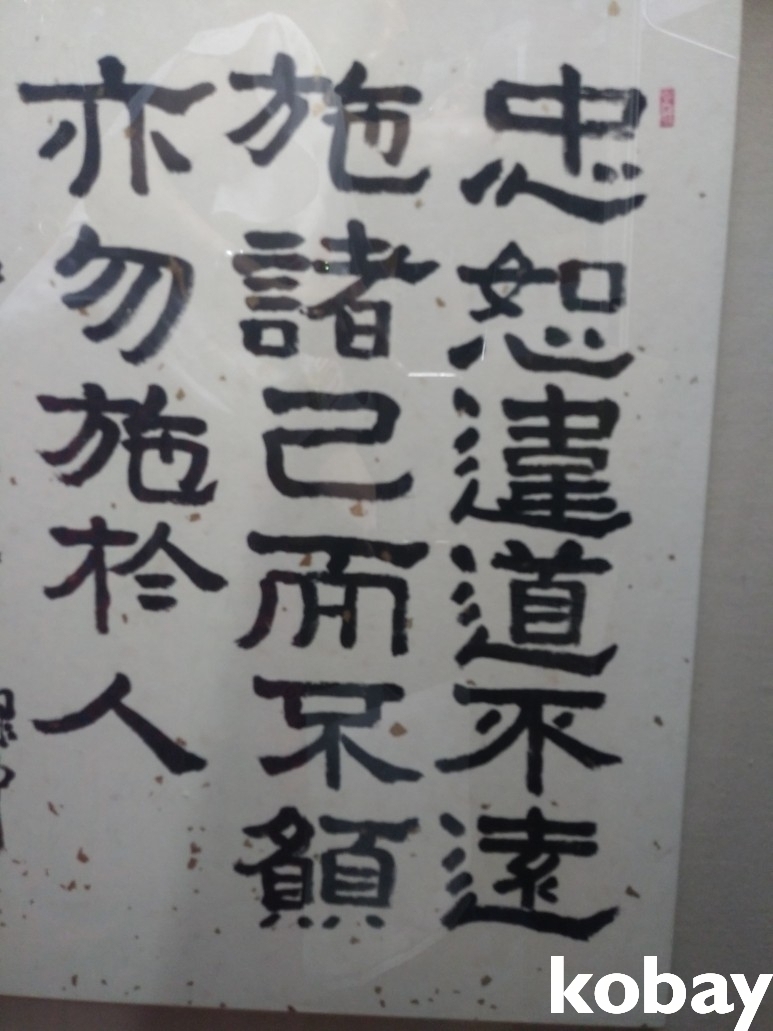 忠恕違道不遠
施諸己而不願
亦勿施於人
kobay